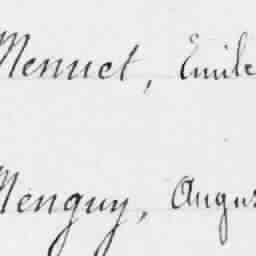 Menuet, Emile
Menguy, Augus